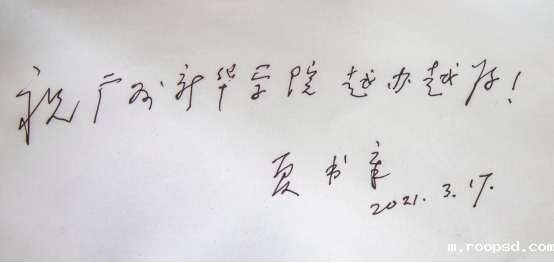 祝广州新华学院越办越好!
夏书章
2021.3.17.
m.roopsd.com